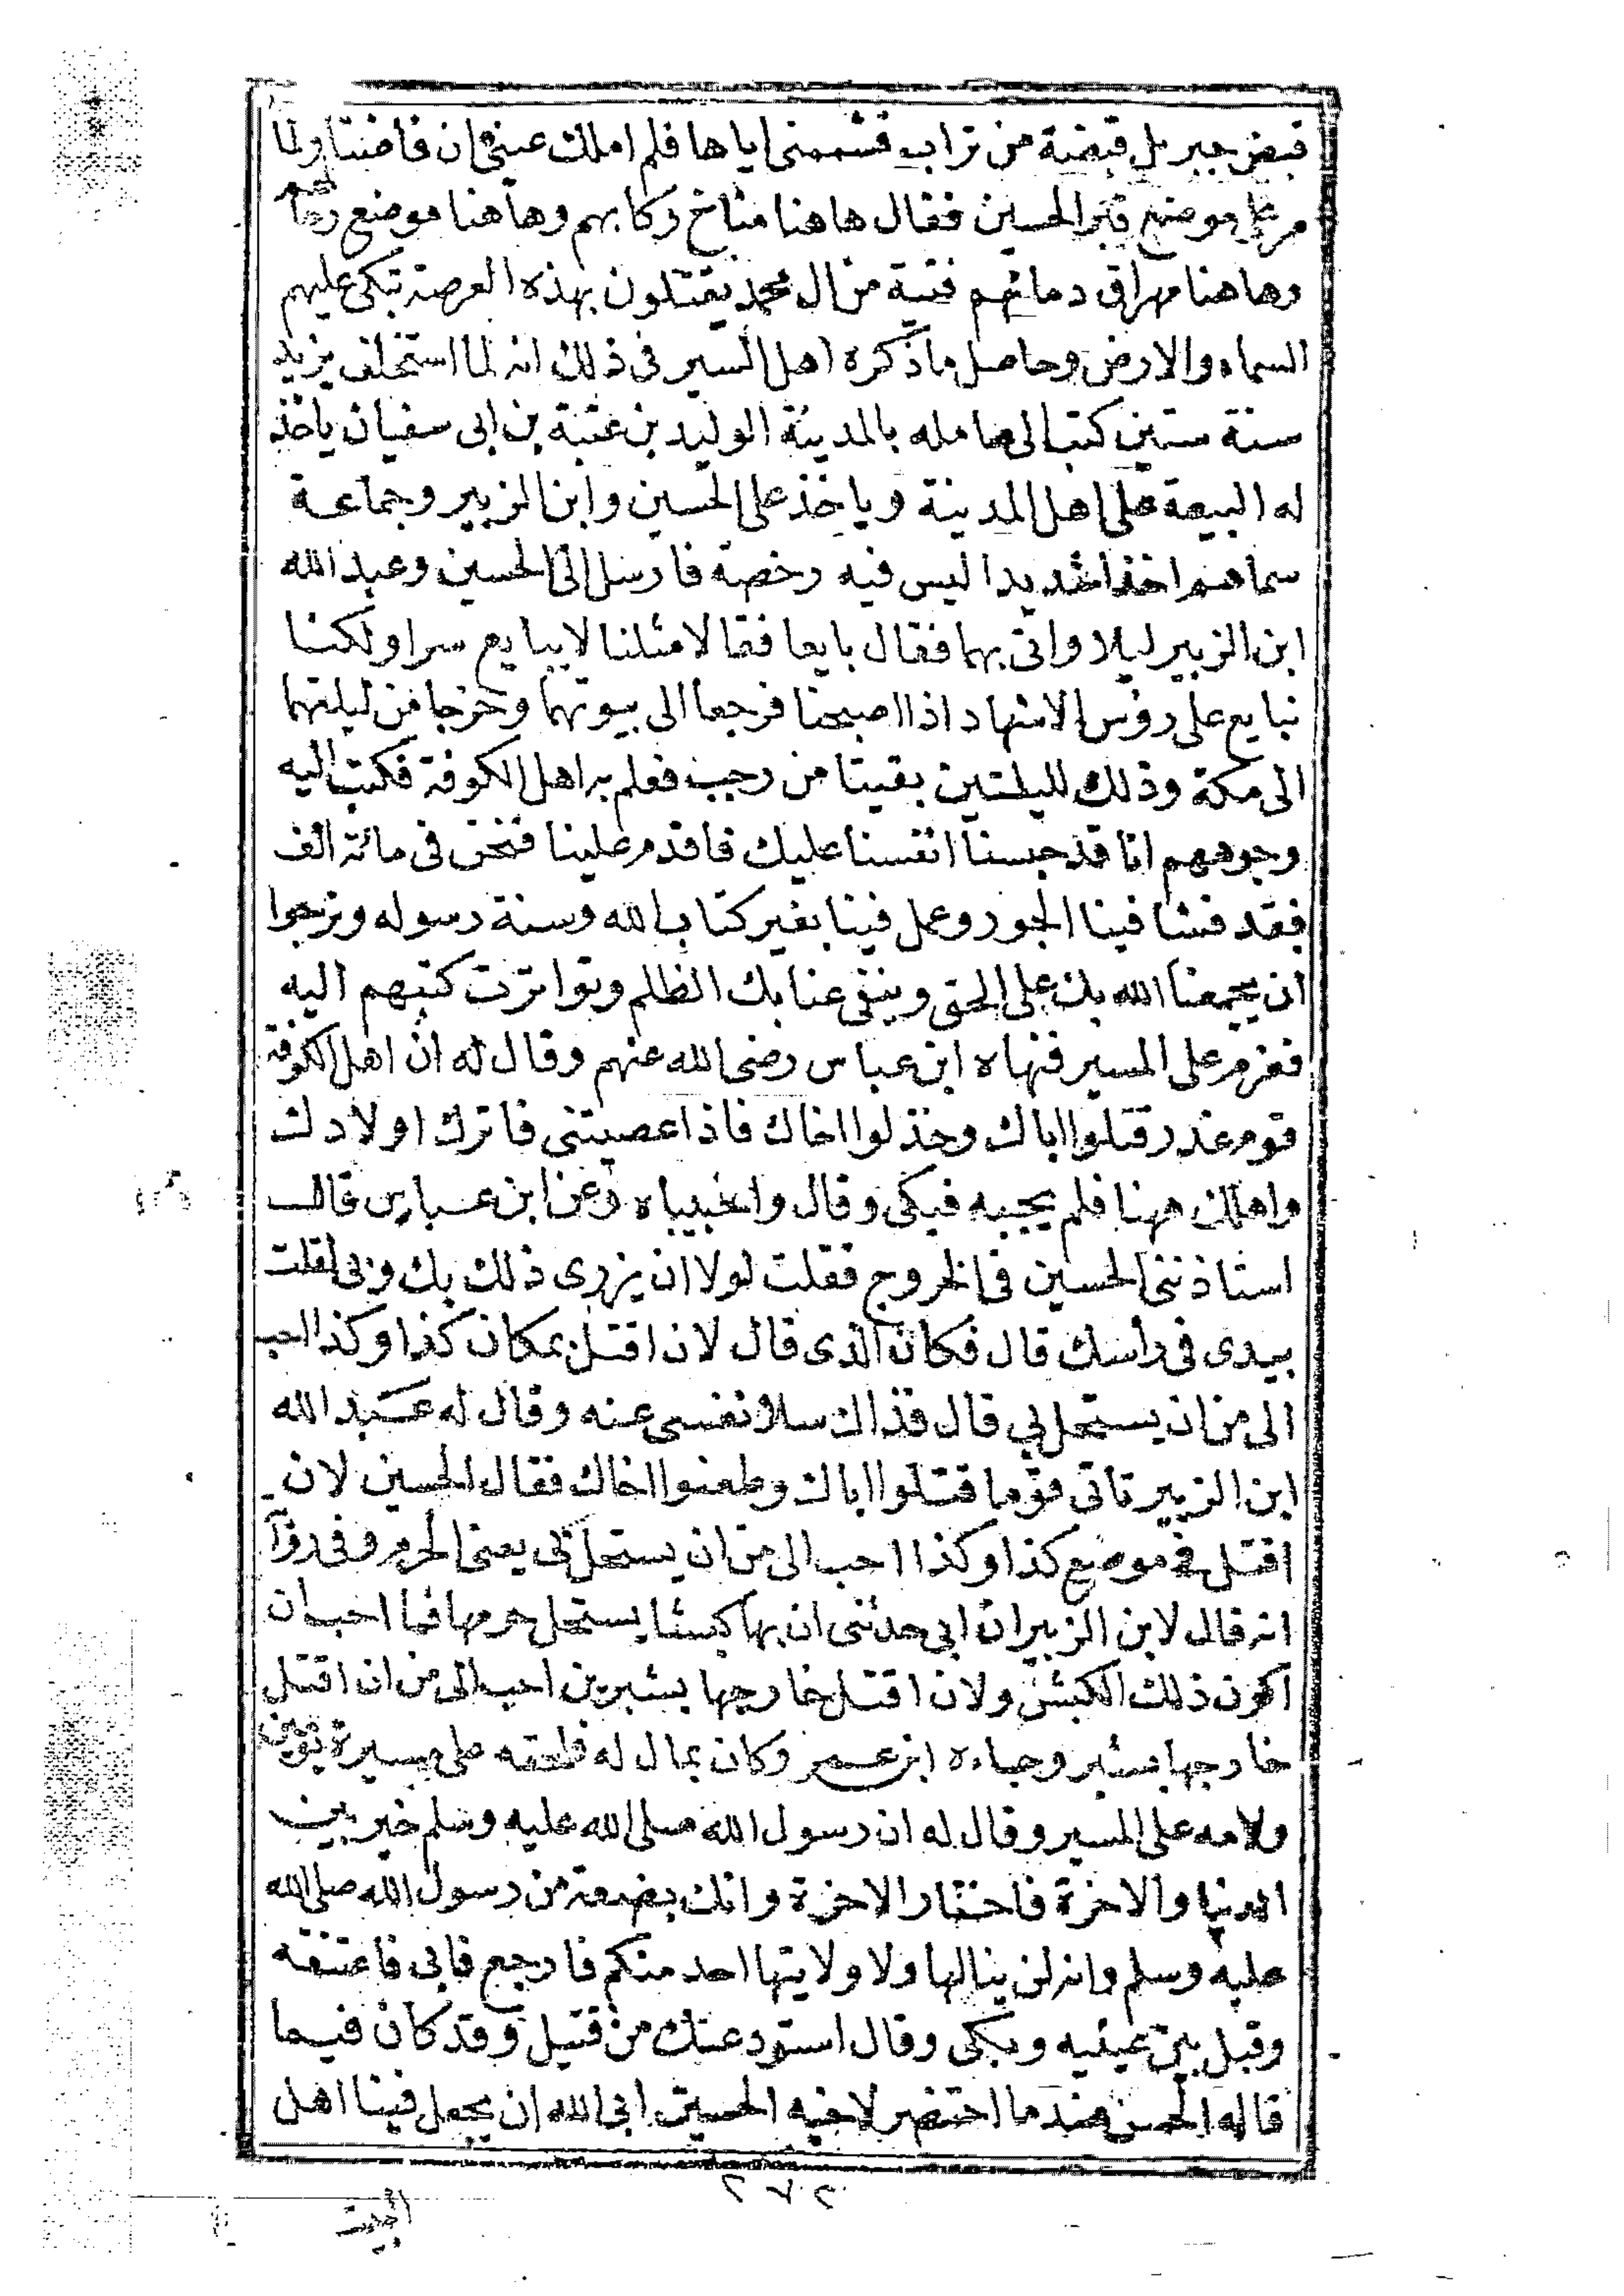 قبض جبريل قبضة من تراب فشممنى اياها فلم املك عينى ان فاضتا ولما
مر على موضع قبر الحسين فقال هاهنا مناخ ركابهم وهاهنا موضع رحالهم
وهاهنا مهراق دمائهم فتية من ال محمد يقتلون بهذه العرصة تبكى عليهم
السماء والارض وحاصل ما ذكره اهل السير فى ذلك انه لما استخلف يزيد
سنة ستين كتب الى عامله بالمدينة الوليد بن عتبة بن ابى سفيان ياخذ
له البيعة على اهل المدينة وياخذ على الحسين وابن الزبير وجماعة
سماهم اخذا شديدا ليس فيه رخصة فارسل الى الحسين وعبد الله
ابن الزبير ليلا واتى بهما فقال بايعا فقالا مثلنا لا يبايع سرا ولكنا
نبايع على رؤس الاشهاد اذا اصبحنا فرجعا الى بيوتهما وخرجا من ليلتهما
الى مكة وذلك لليلتين بقيتا من رجب فعلم به اهل الكوفة فكتب اليه
وجوههم انا قد حبسنا انفسنا عليك فاقدم علينا فنحن فى مائة الف
فقد فشا فينا الجور وعمل فينا بغير كتاب الله وسنة رسوله ونرجوا
ان يجمعنا الله بك على الحق وينفى عنا بك الظلم وتواترت كتبهم اليه
فعزم على المسير فنهاه ابن عباس رضى الله عنهم وقال له ان اهل الكوفة
قوم غدر قتلوا اباك وخذلوا اخاك فاذا عصيتنى فاترك اولادك
واهلك ههنا فلم يجبه فبكى وقال واحبيباه وعن ابن عباس قال
استاذننى الحسين فى الخروج فقلت لولا ان يزرى ذلك بك وبى لقلت
بيدى فى راسك قال فكان الذى قال لان اقتل بمكان كذا وكذا احب
الى من ان يستحل بي قال فذاك سلا نفسى عنه وقال له عبد الله
ابن الزبير تاتى قوما قتلوا اباك وطعنوا اخاك فقال الحسين لان
اقتل فى موضع كذا وكذا احب الى من ان يستحل بى يعنى الحرم وفى رواية
انه قال لابن الزبير ان ابى حدثنى ان بها كبشا يستحل حرمها فما احب ان
اكون ذلك الكبش ولان اقتل خارجها بشبرين احب الى من ان اقتل
خارجها بشبر وجاءه ابن عمر وكان بمال له فلحقه على مسيرة يومين
ولامه على المسير وقال له ان رسول الله صلى الله عليه وسلم خير بين
الدنيا والاخرة فاختار الاخرة وانك بضعة من رسول الله صلى الله
عليه وسلم وانه لن ينالها ولا ولايتها احد منكم فارجع فابى فاعتنقه
وقبل بين عينيه وبكى وقال استودعتك من قتيل وقد كان فيما
قاله الحسن عندما احتضر لاخيه الحسين ابى الله ان يجعل فينا اهل